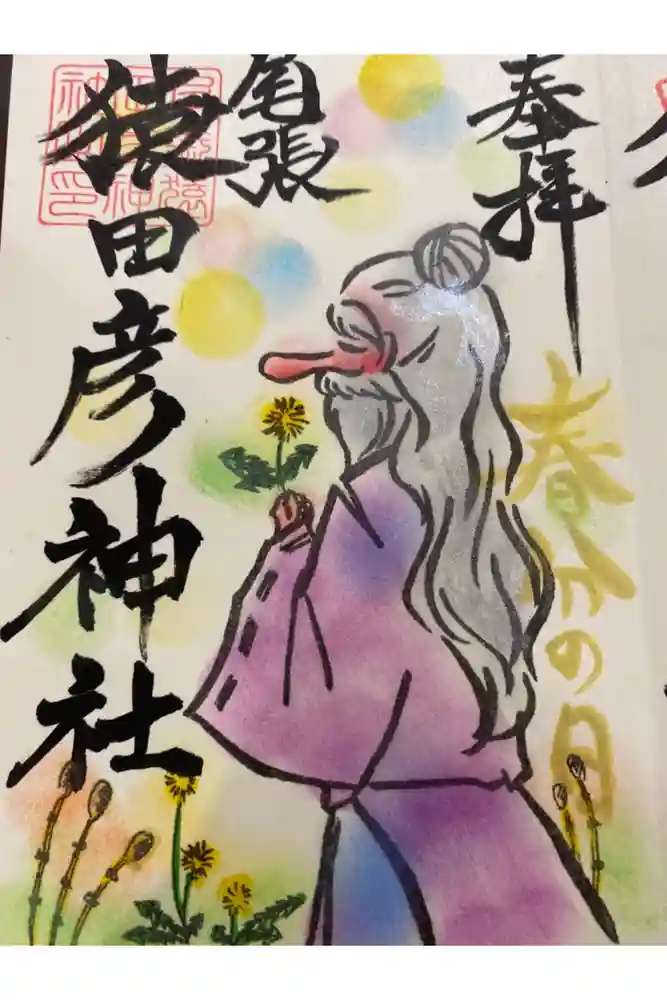 奉拝
春分の日
尾張
猿田彦神社